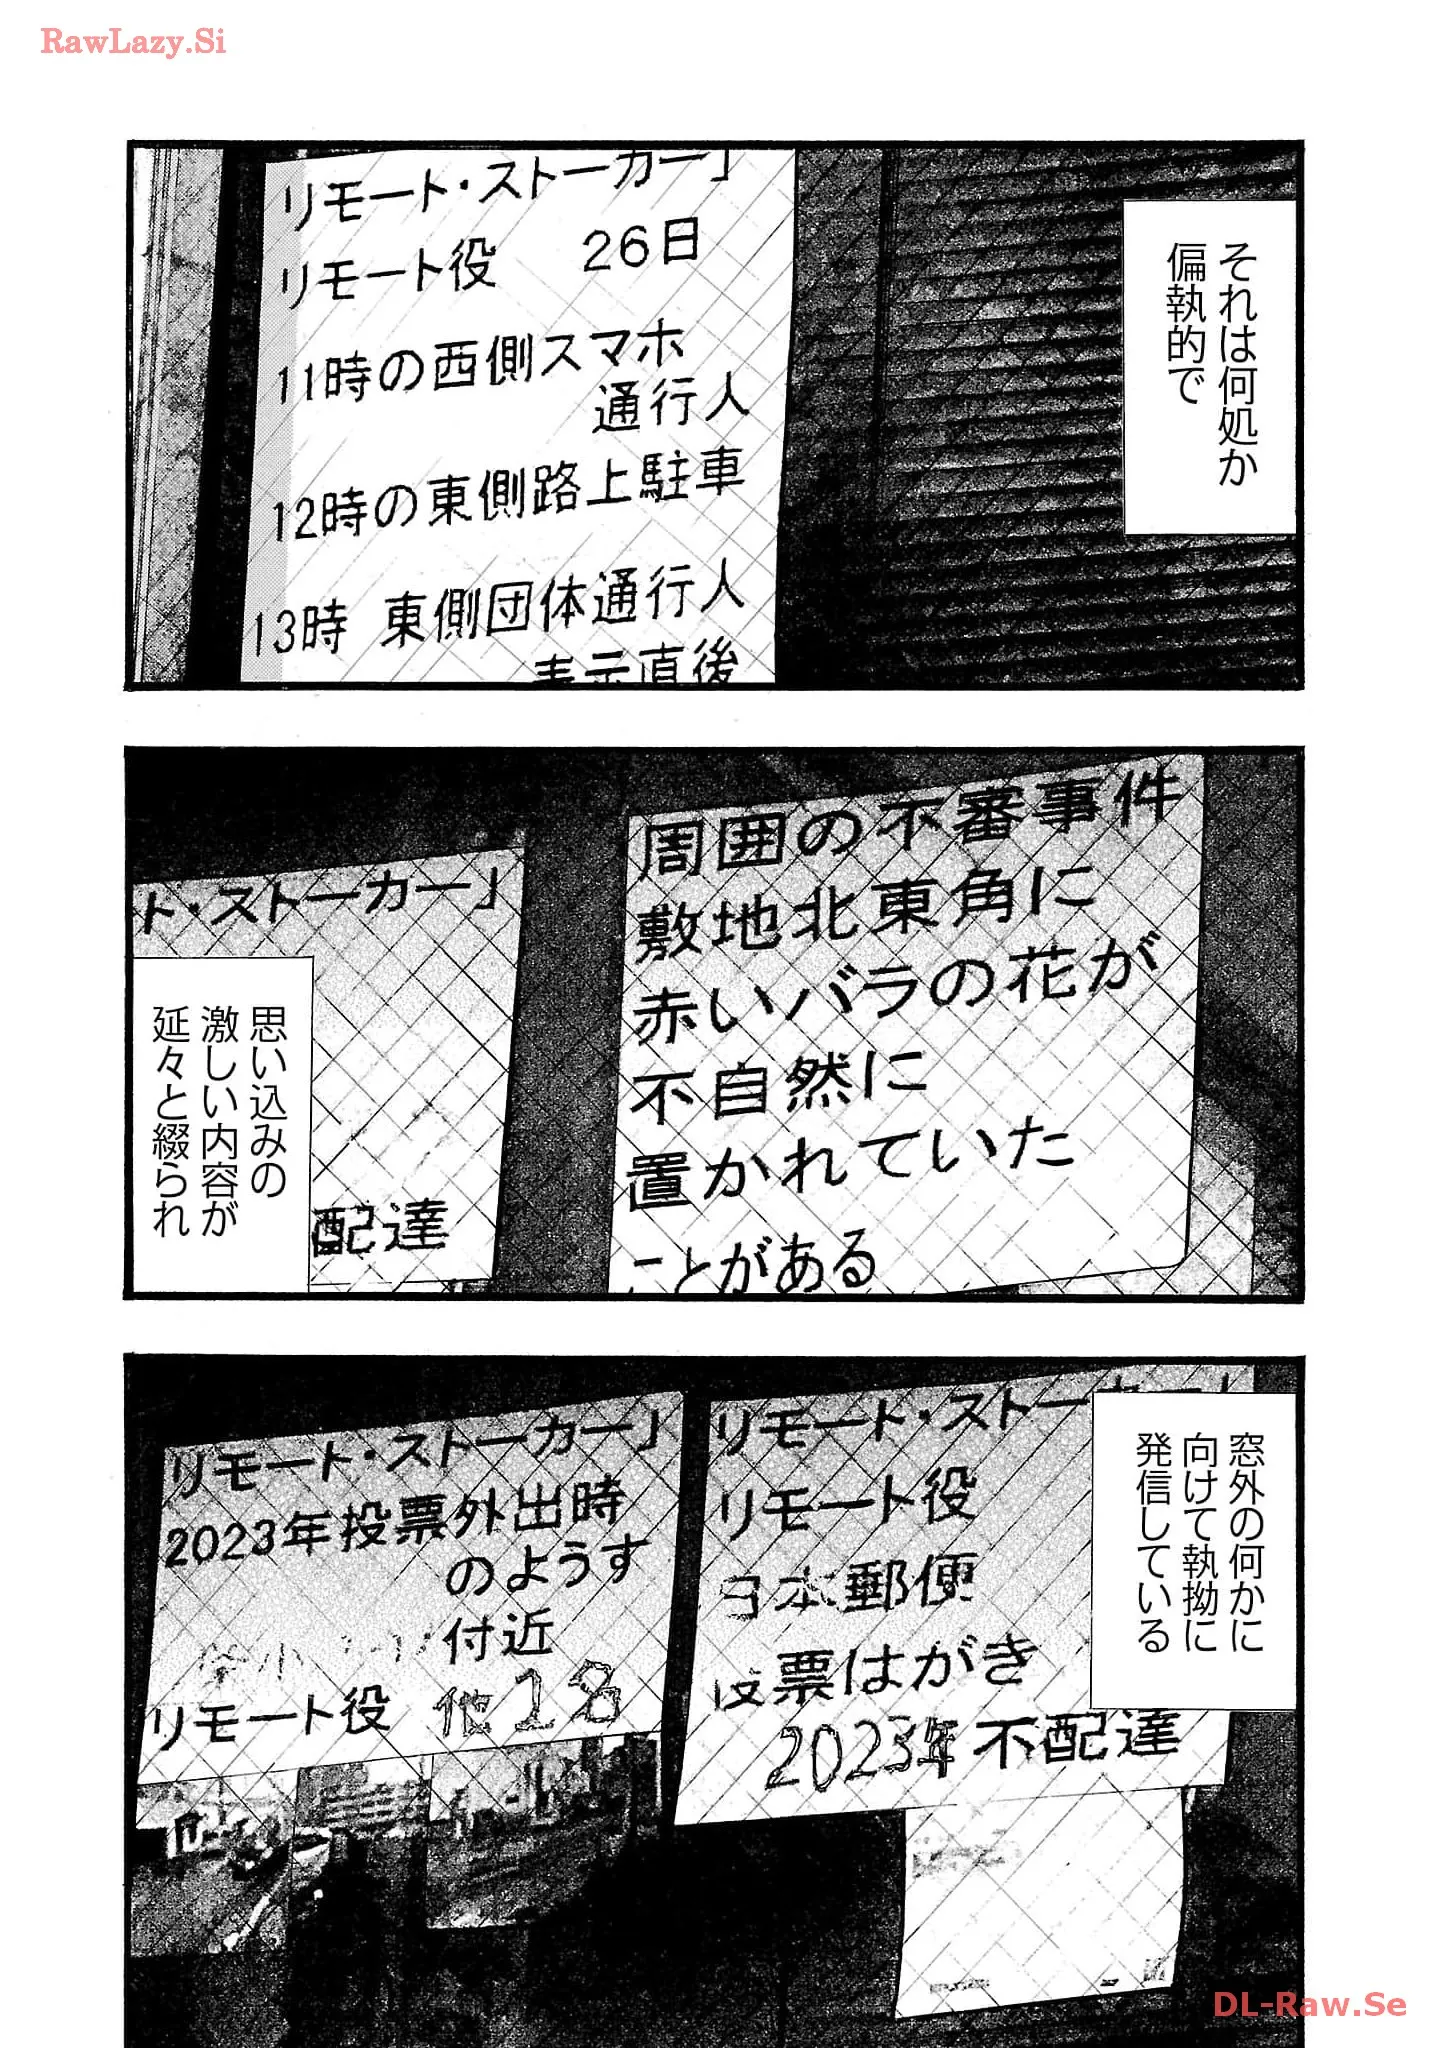 RawLazy.Si
それは何処か
偏執的で
リモート・ストーカー」
リモート役 26日
11時の西側スマホ
通行人
12時の東側路上駐車
13時 東側団体通行人
表示直後
周囲の不審事件
敷地北東角に
赤いバラの花が
不自然に
置かれていた
ことがある
ト・ストーカー」
配達
思い込みの
激しい内容が
延々と綴られ
窓外の何かに
向けて執拗に
発信している
リモート・ストーカー」
リモート役
日本郵便
投票はがき
2023年不配達
リモート・ストーカー」
2023年投票外出時
のようす
付近
リモート役 他18
DL-Raw.Se